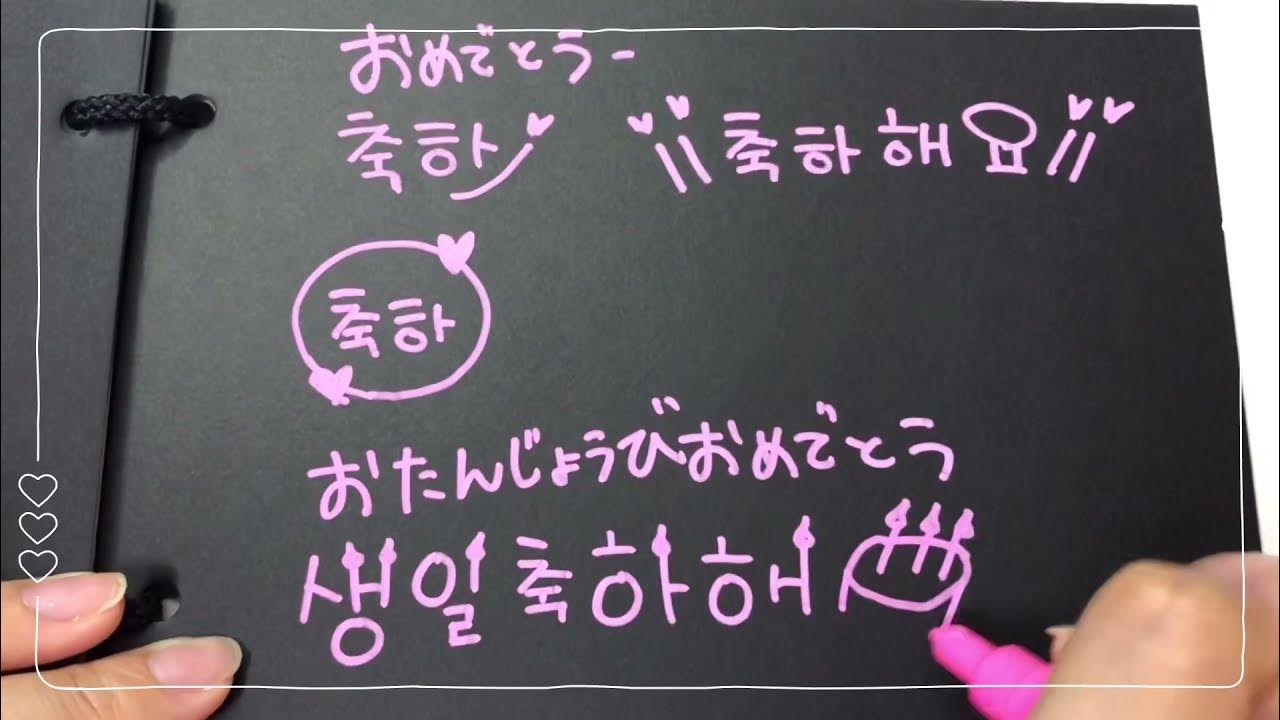 おめでとうー
축하 축하해요
축하
おたんじょうびおめでとう
생일축하해